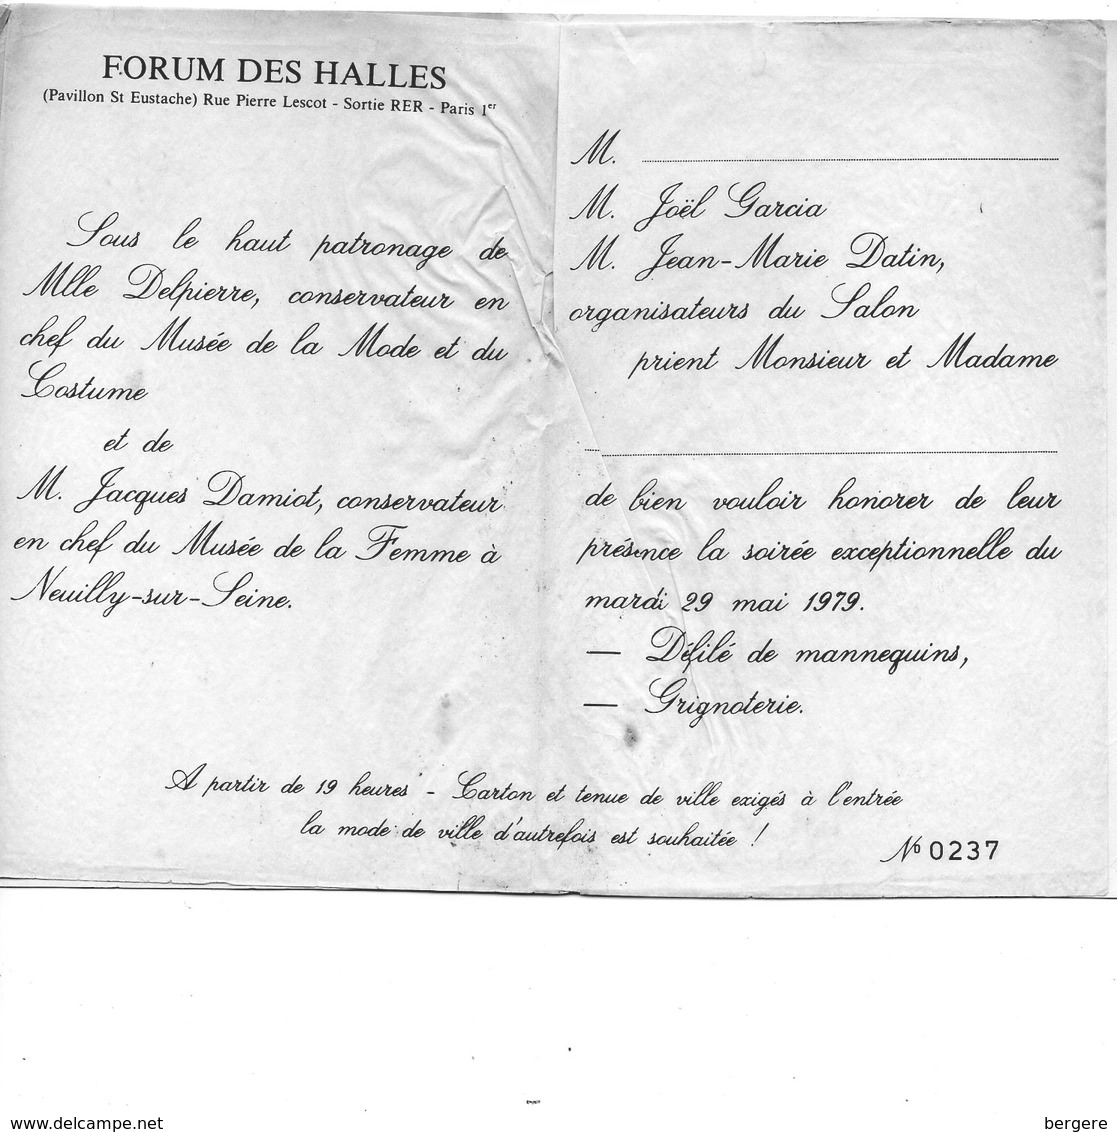 FORUM DES HALLES
(Pavillon St Eustache) Rue Pierre Lescot - Sortie RER - Paris 1er
Sous le haut patronage de
Mlle Delpierre, conservateur en
chef du Musée de la Mode et du
Costume
et de
M. Jacques Damiot, conservateur
en chef du Musée de la Femme à
Neuilly-sur-Seine.
M.
M. Joël Garcia
M. Jean-Marie Datin,
organisateurs du Salon
prient Monsieur et Madame
de bien vouloir honorer de leur
présence la soirée exceptionnelle du
mardi 29 mai 1979.
— Défilé de mannequins,
— Grignoterie.
A partir de 19 heures - Carton et tenue de ville exigés à l'entrée
la mode de ville d'autrefois est souhaitée !
No 0237
www.delcampe.net
bergere